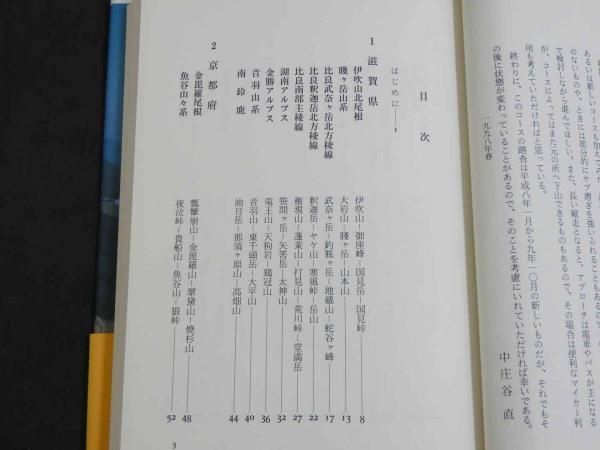 あるいは新しいコースも加えてみ
のないものや、ときには部分的にヤブ漕ぎを強いられることもあ
で検討しながら進んでほしい。また、長い縦走となると、アプローチは電車やバスが主になる
が、コースによってはまた元の所へ下山できるものもあるので、その場合は便利なマイカー利
用も考えていただければと思っている。
終わりに、このコースの踏査は平成八年一月から九年一〇月の新しいものだが、それでもそ
の後に状態が変わっていることがあるので、そのことを考慮にいれていただければ幸いである。
一九九八年春
中庄谷 直
目次
はじめに——1
1 滋賀県
伊吹山北尾根 伊吹山－御座峰－国見岳－国見峠 8
賤ヶ岳山系 大岩山－賤ヶ岳－山本山 13
比良武奈ヶ岳北方稜線 武奈ヶ岳－釣瓶ヶ岳－地蔵山－蛇谷ヶ峰 17
比良釈迦岳北方稜線 釈迦岳－ヤケ山－寒風峠－岳山 22
比良南部主稜線 権現山－蓬莱山－打見山－荒川峠－堂満岳 27
湖南アルプス 笹間ヶ岳－矢筈岳－太神山 32
金勝アルプス 竜王山－天狗岩－鶏冠山 36
音羽山系 音羽山－東千頭岳－大平山 40
南鈴鹿 油日岳－那須ヶ原山－高畑山 44
2 京都府
金毘羅尾根 瓢箪崩山－金毘羅山－翠黛山－焼杉山 48
魚谷山々系 夜泣峠－貴船山－魚谷山－狼峠 52
3